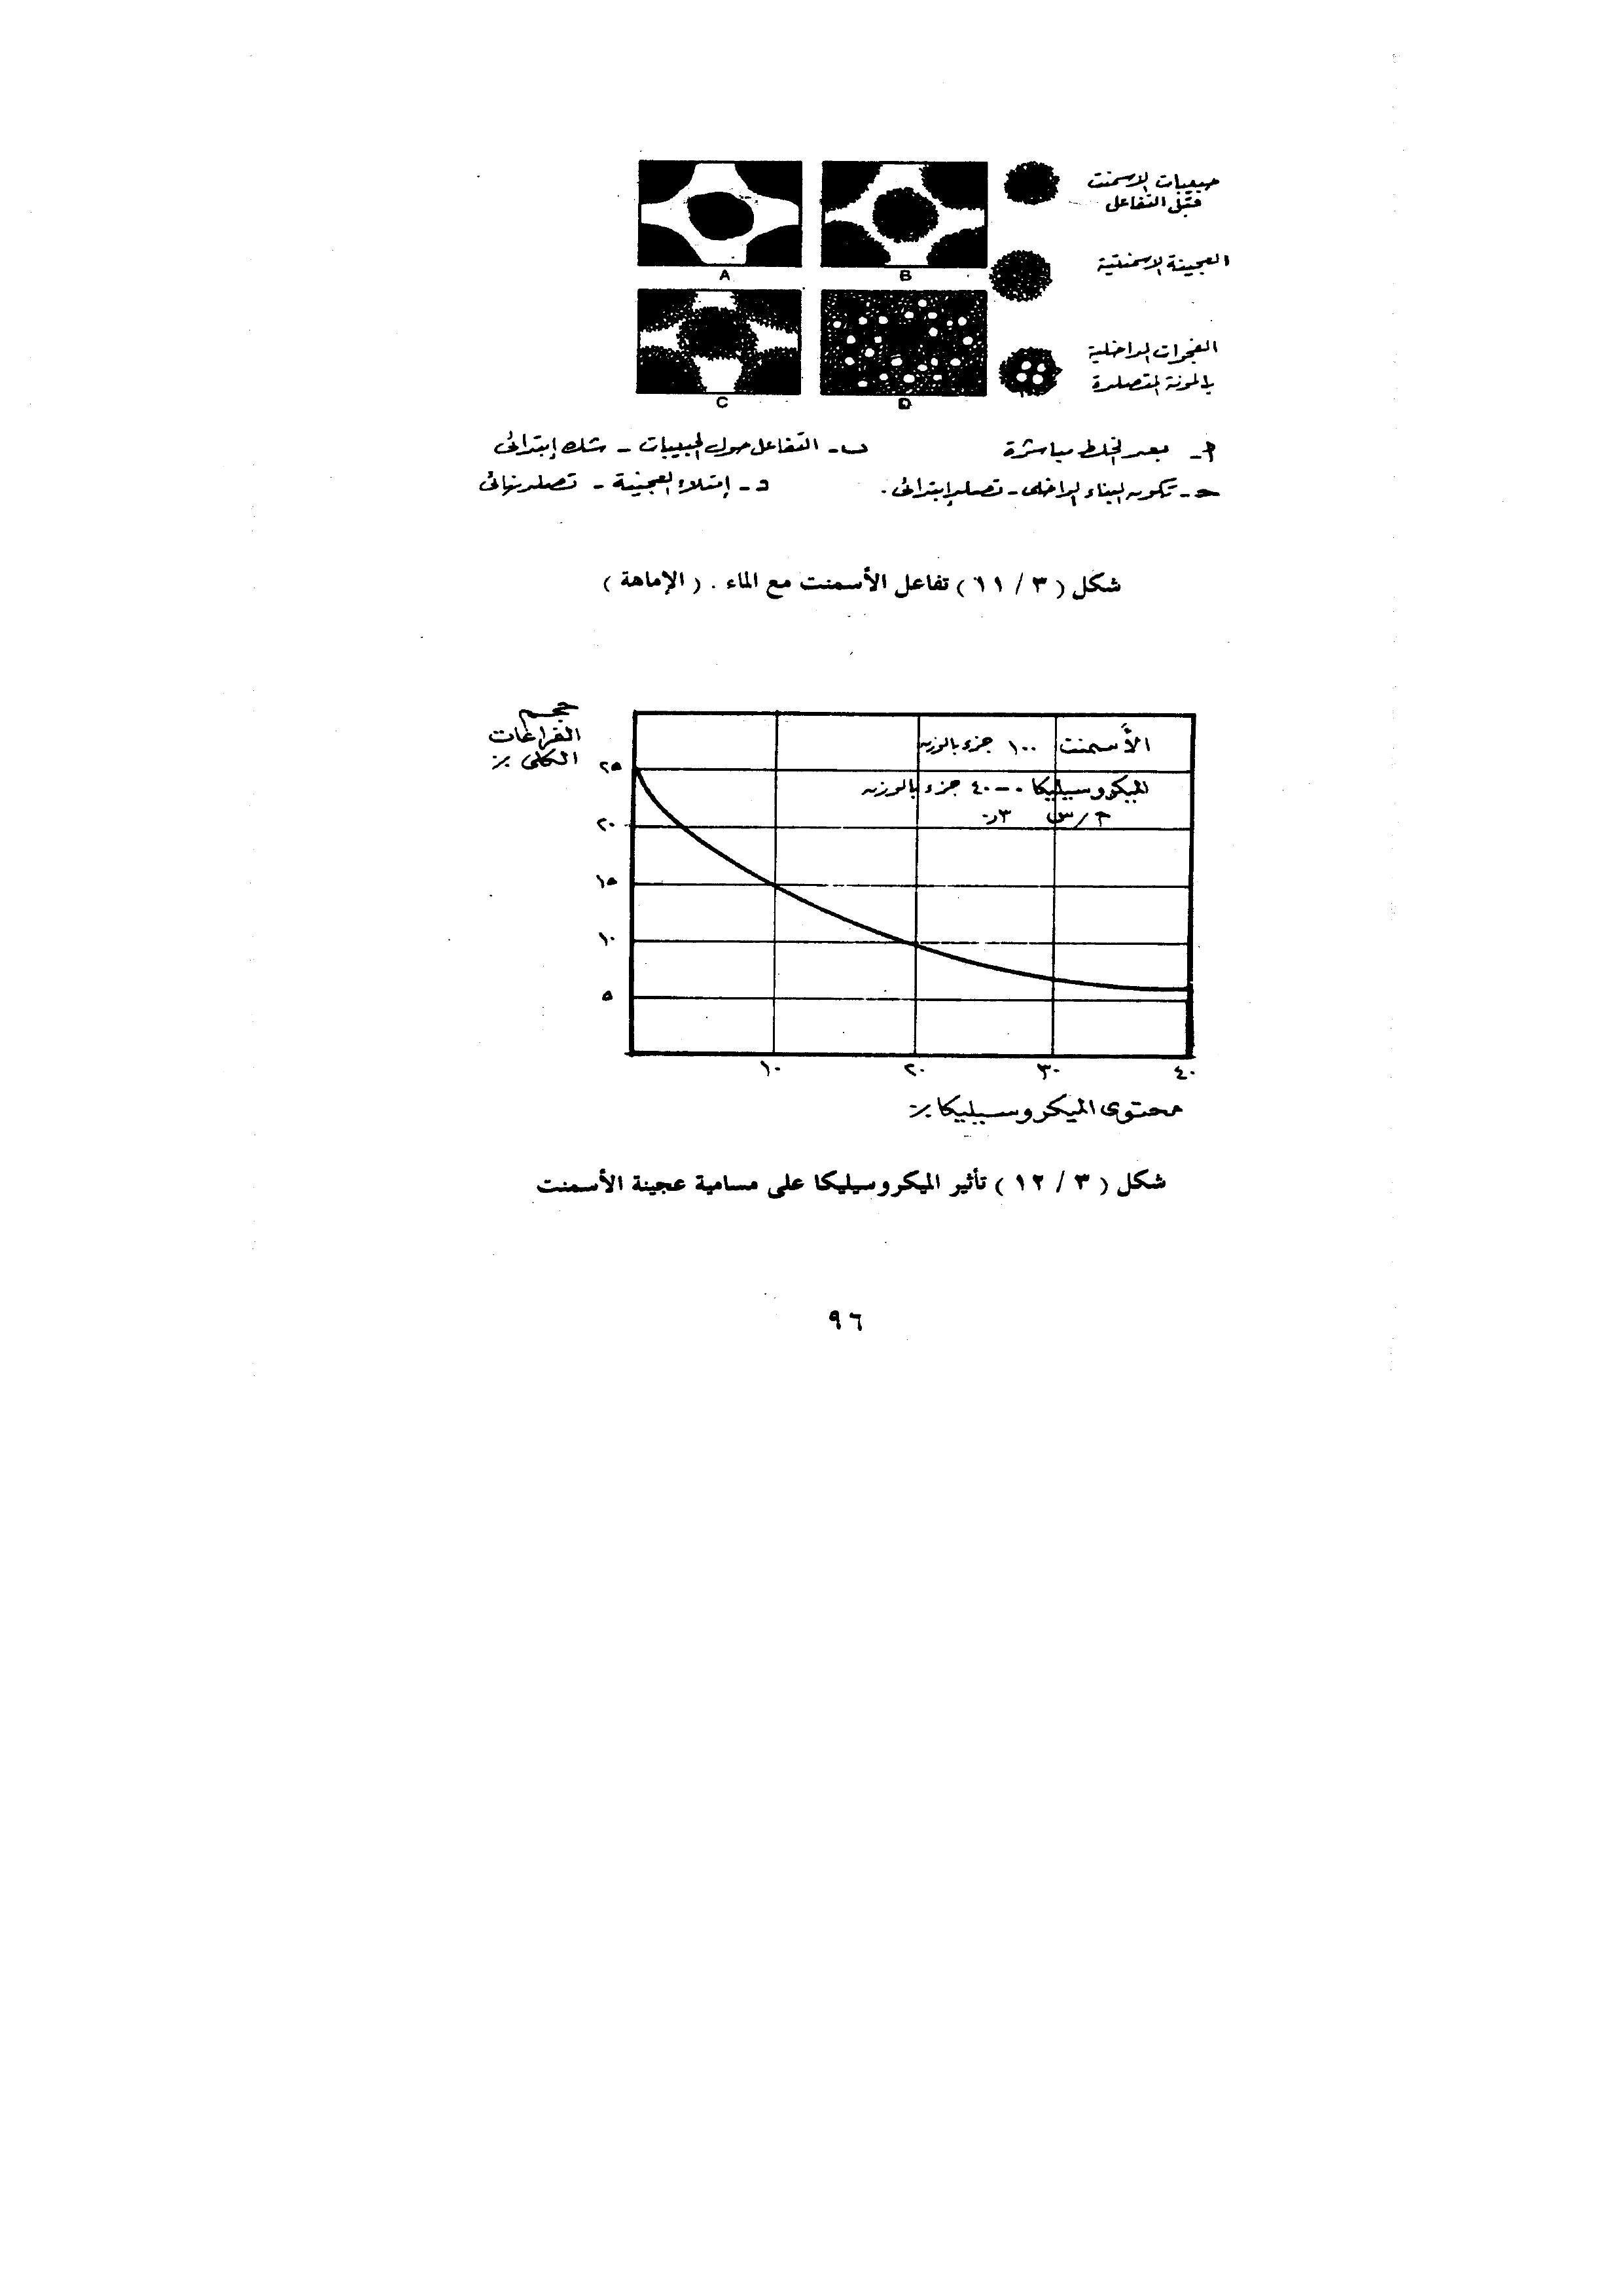 حبيبات الاسمنت
قبل التفاعل
A B
العجينة الاسمنتية
الفجوات الداخلية
بالمونة المتصلدة
C D
أ- بعد الخلط مباشرة
ب- التفاعل حول الحبيبات - شك إبتدائى
حـ- تكون البناء الداخلى - تصلد إبتدائى.
د- إمتلاء العجينة - تصلد نهائى
شكل ( ٣ / ١١ ) تفاعل الأسمنت مع الماء . ( الإماهة )
حجم
الفراغات
الكلى ٪
الأسمنت ١٠٠ جزء بالوزن
الميكروسيليكا ٠-٤٠ جزء بالوزن
م/س ٣ر٠
٢٥
٢٠
١٥
١٠
٥
١٠ ٢٠ ٣٠ ٤٠
محتوى الميكروسيليكا ٪
شكل ( ٣ / ١٢ ) تأثير الميكروسيليكا على مسامية عجينة الأسمنت
٩٦